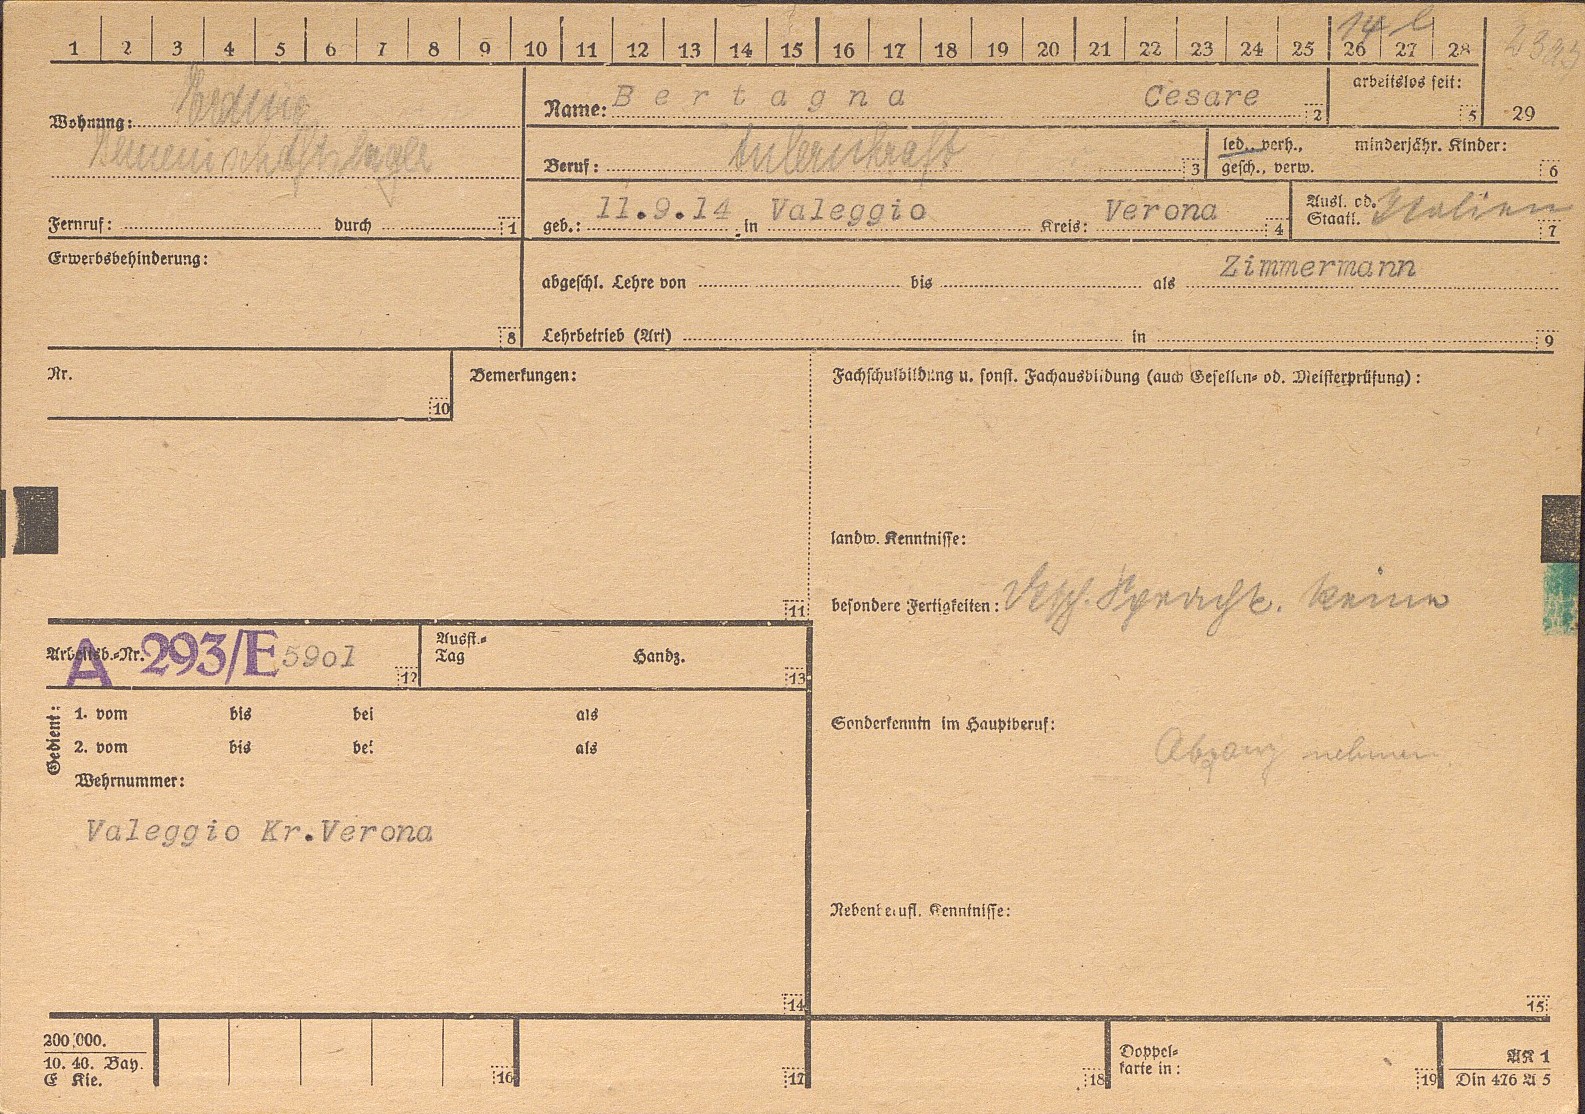 1 2 3 4 5 6 7 8 9 10 11 12 13 14 15 16 17 18 19 20 21 22 23 24 25 26 27 28
Wohnung:
Name: Bertagna Cesare 2
arbeitslos seit: 5
29
Beruf: 3
led., verh., gesch., verw.
minderjähr. Kinder: 6
Fernruf: durch 1
geb.: 11.9.14 in Valeggio Kreis: Verona 4
Ausl. od. Staatl. Italien 7
Erwerbsbehinderung: 8
abgeschl. Lehre von bis als Zimmermann
Lehrbetrieb (Art) in 9
Nr. 10
Bemerkungen: 11
Fachschulbildung u. sonst. Fachausbildung (auch Gesellen- od. Meisterprüfung):
landw. Kenntnisse:
besondere Fertigkeiten: Dtsch. Sprachk. keine
Arbeitsb.-Nr. A 293/E 5901 12
Ausst.-Tag Handz. 13
Sonderkenntn im Hauptberuf:
Abgang nehmen
Gedient:
1. vom bis bei als
2. vom bis bei als
Wehrnummer:
Valeggio Kr.Verona
14
Nebenberufl. Kenntnisse:
15
200,000.
10. 40. Bay.
E Kie.
16 17 18
Doppelkarte in: 19
AK 1
Din 476 A 5